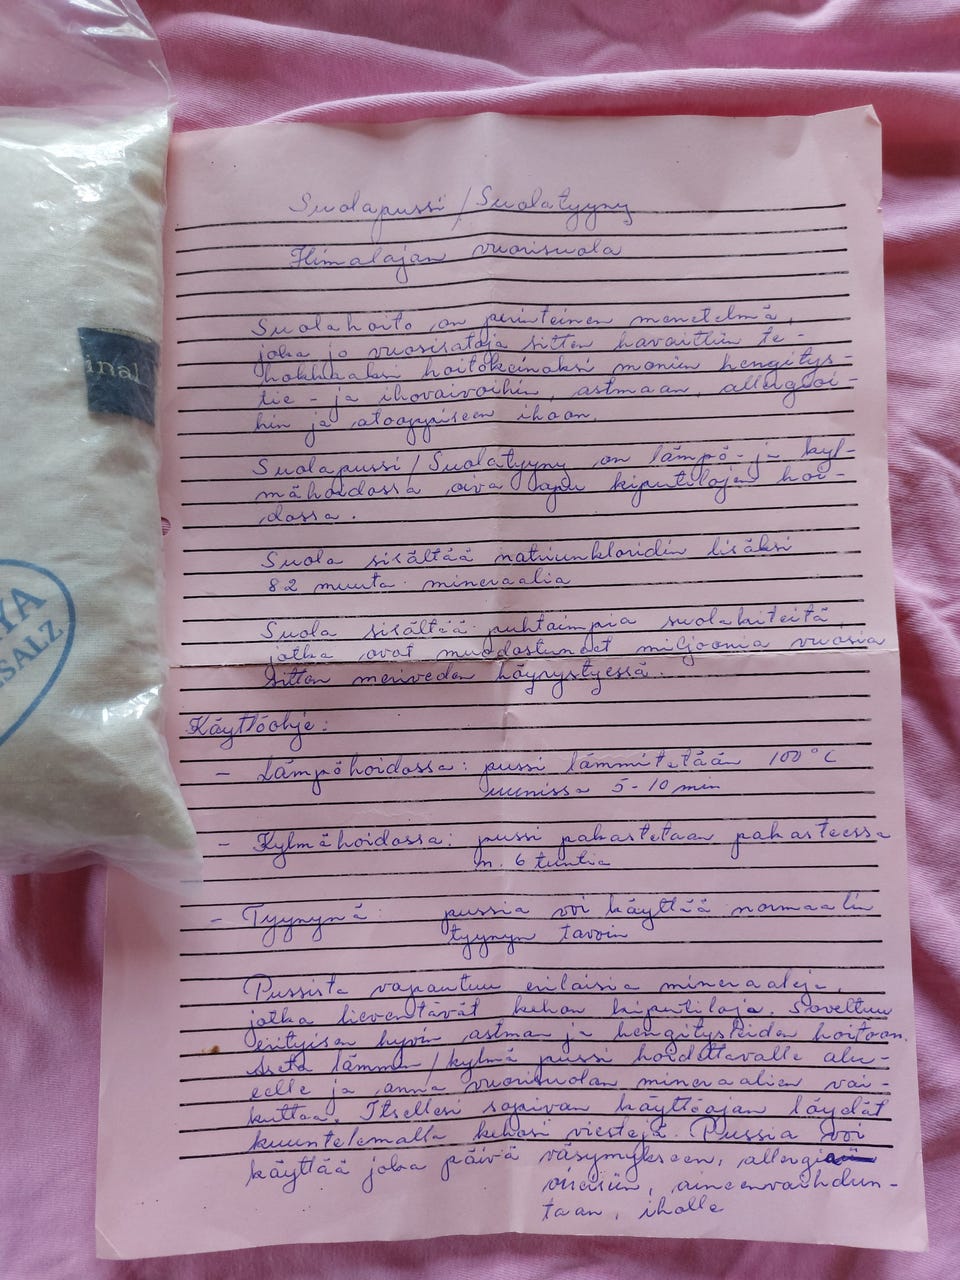 inal
YA
SALZ
Suolapussi / Suolatyyny
Himalajan vuorisuola
Suolahoito on perinteinen menetelmä,
joka jo vuosisatoja sitten havaittiin te-
hokkaaksi hoitokeinoksi moniin hengitys-
tie - ja ihovaivoihin, astmaan, allergioi-
hin ja atooppiseen ihoon.
Suolapussi / Suolatyyny on lämpö- ja kyl-
mähoidossa oiva apu kiputilojen hoi-
dossa.
Suola sisältää natriunkloridin lisäksi
82 muuta mineraalia
Suola sisältää puhtaimpia suolakiteitä,
jotka ovat muodostuneet miljoonia vuosia
sitten meriveden höyrystyessä.
Käyttöohje:
- Lämpöhoidossa: pussi lämmitetään 100°C
uunissa 5-10 min
- Kylmähoidossa: pussi pakastetaan pakasteessa
n. 6 tuntia
- Tyynynä: pussia voi käyttää normaalin
tyynyn tavoin
Pussista vapautuu erilaisia mineraaleja,
jotka lieventävät kehon kiputiloja. Soveltuu
erityisen hyvin astman ja hengitysteiden hoitoon.
Aseta lämmin / kylmä pussi hoidettavalle alu-
eelle ja anna vuorisuolan mineraalien vai-
kuttaa. Itsellesi sopivan käyttöajan löydät
kuuntelemalla kehosi viestejä. Pussia voi
käyttää joka päivä väsymykseen, allergi
oireisiin, aineenvaihdun-
taan, iholle